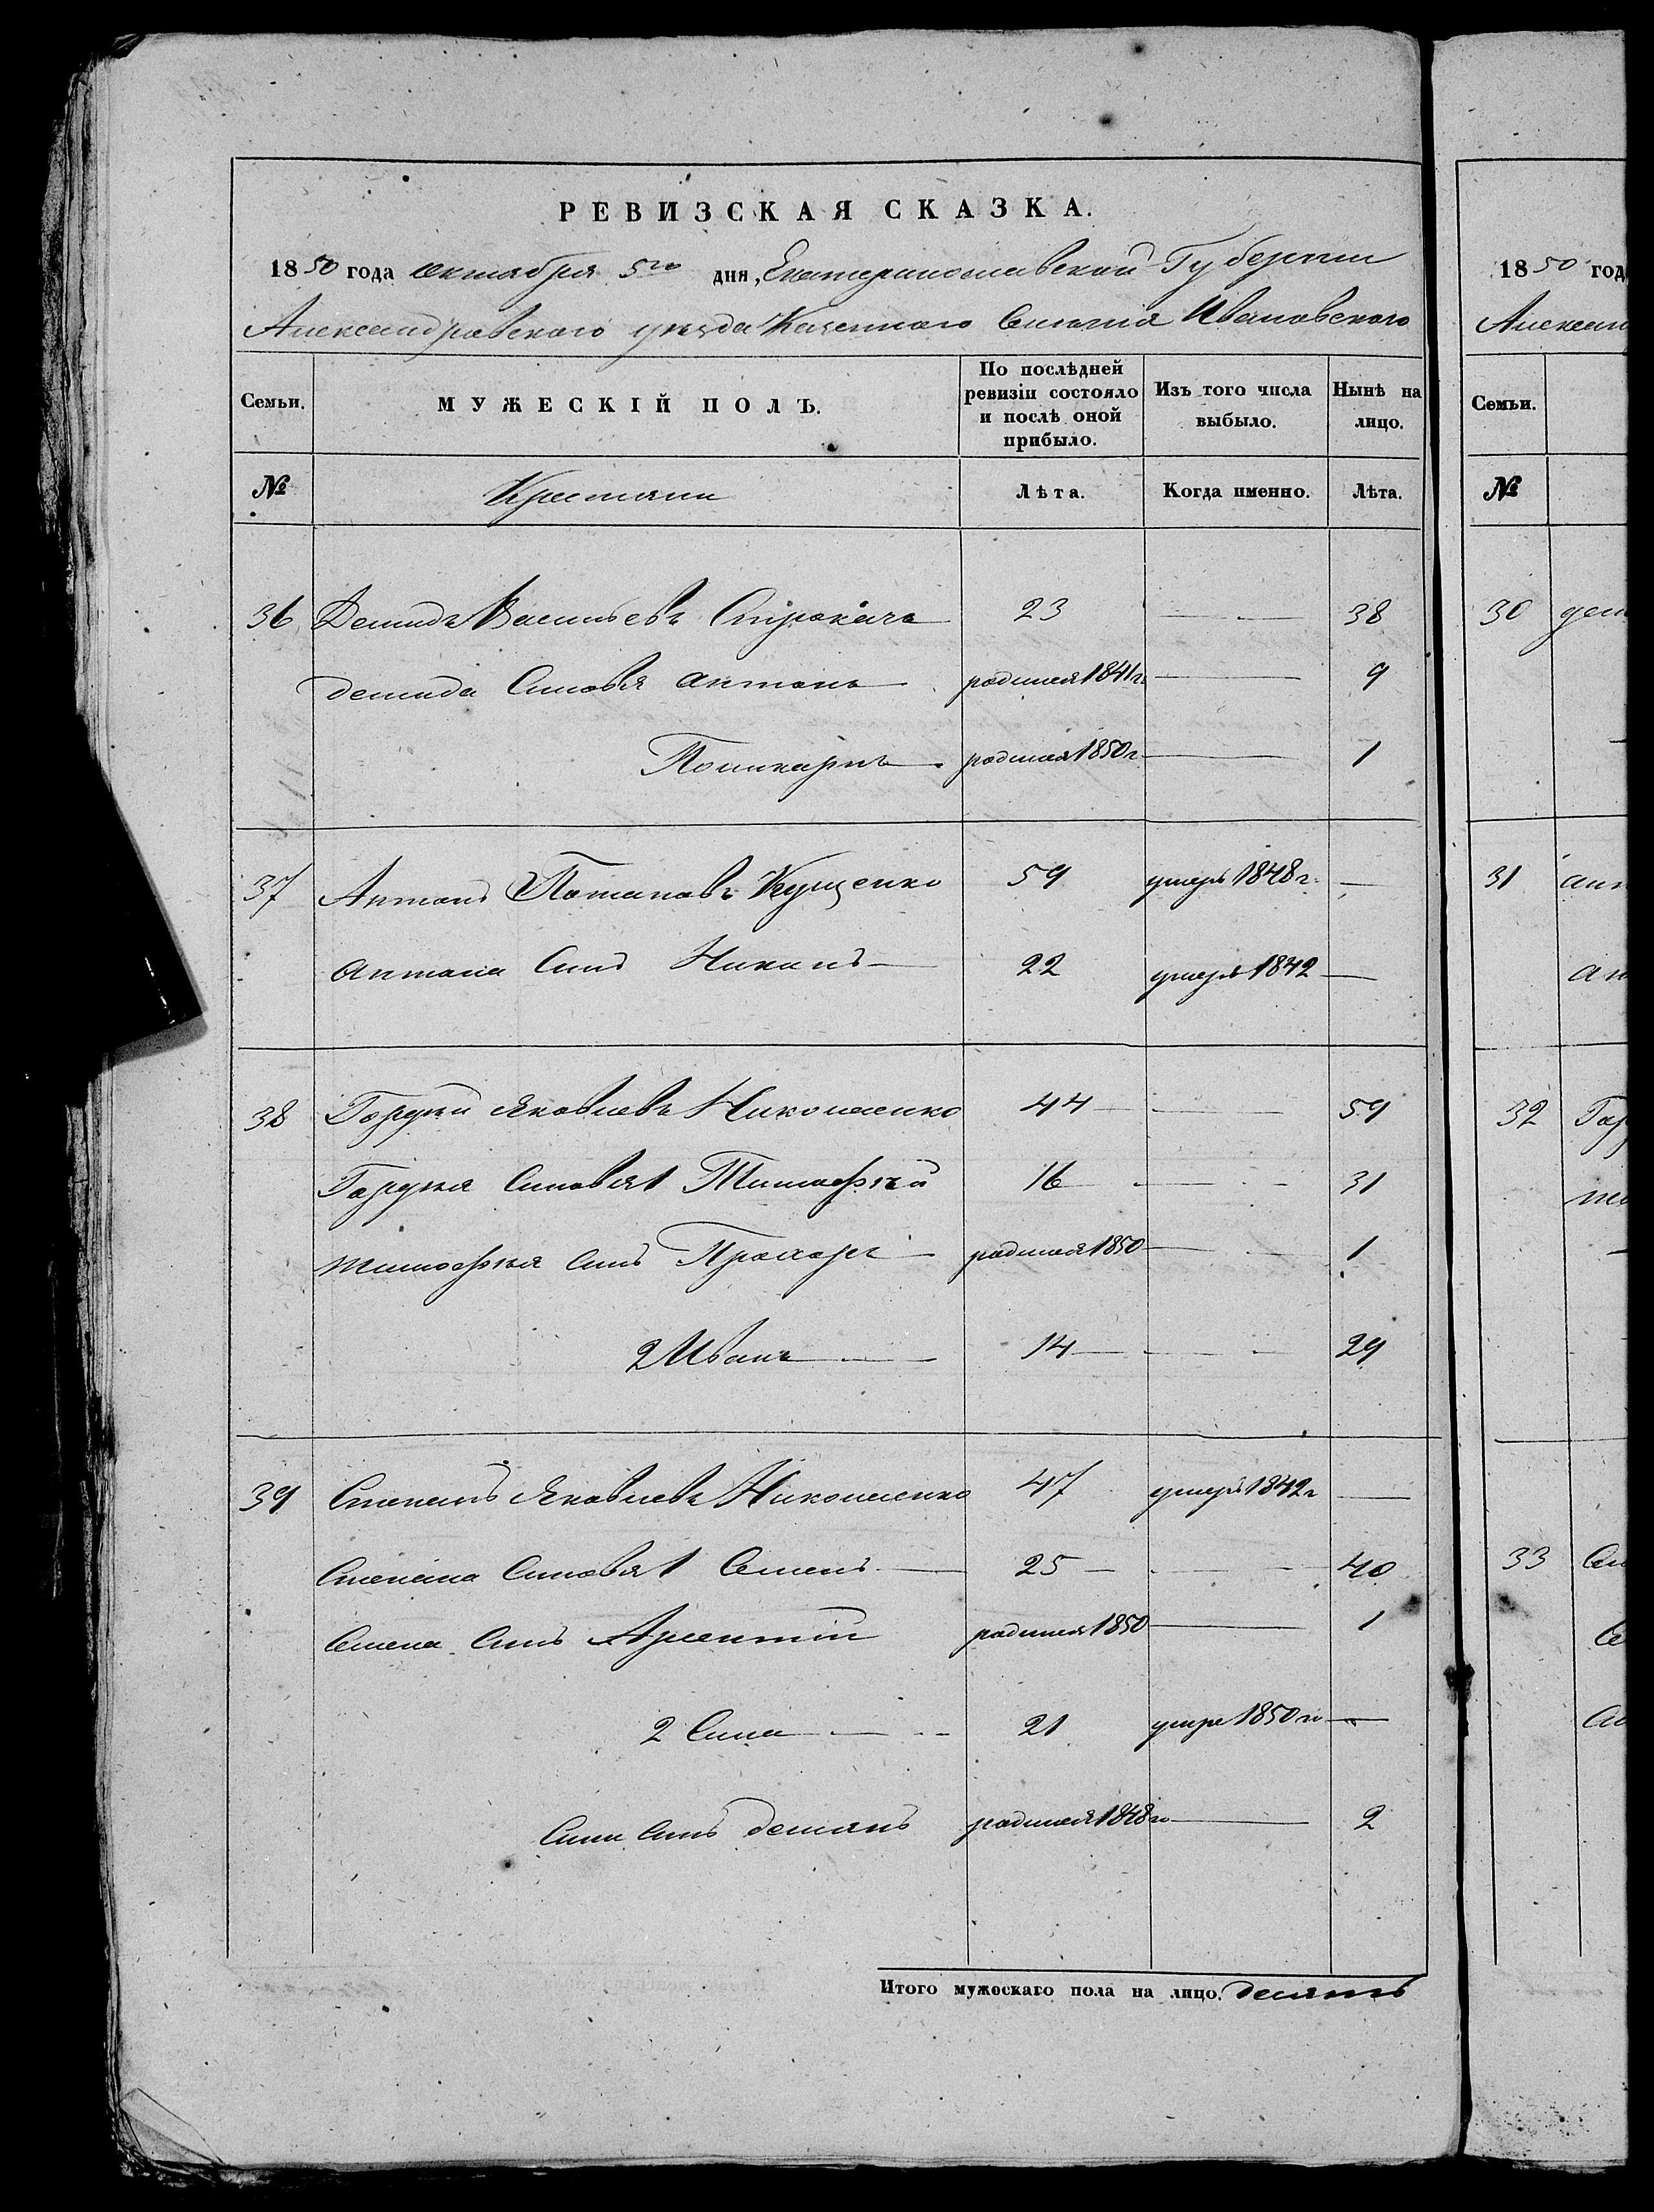 РЕВИЗСКАЯ СКАЗКА.
1850 года октября 5го дня, Екатеринославской Губернии
Александровского уезда Казенного Селения Ивановского
Семьи. МУЖЕСКІЙ ПОЛЪ. По послѣдней ревизіи состояло и послѣ оной прибыло. Изъ того числа выбыло. Нынѣ на лицо.
№ Крестяни Лѣта. Когда именно. Лѣта.
36 Демидъ Васильевъ 23 — 38
демида Сыновя антонъ родился 1841г. — 9
Поликарпъ родился 1850г. — 1
37 Антонъ Потаповъ Кущенко 59 умеръ 1848г. —
антона Сынъ 22 умеръ 1842 —
38 Гордѣй Яковлевъ Николаенко 44 — 59
Гордѣя Сыновя 1 Тимофѣй 16 — 31
тимофѣя Сынъ Прохоръ родился 1850 — 1
2 Иванъ 14 — 29
39 Степанъ Яковлевъ Николаенко 47 умеръ 1842г —
Степана Сыновя 1 Семенъ 25 — 40
Семена Сынъ Арсентій родился 1850 — 1
2 Сила 21 умре 1850го —
Сили Сынъ демянъ родился 1848го — 2
Итого мужескаго пола на лицо. десять
1850 год
Семьи.
№
30
31
32
33